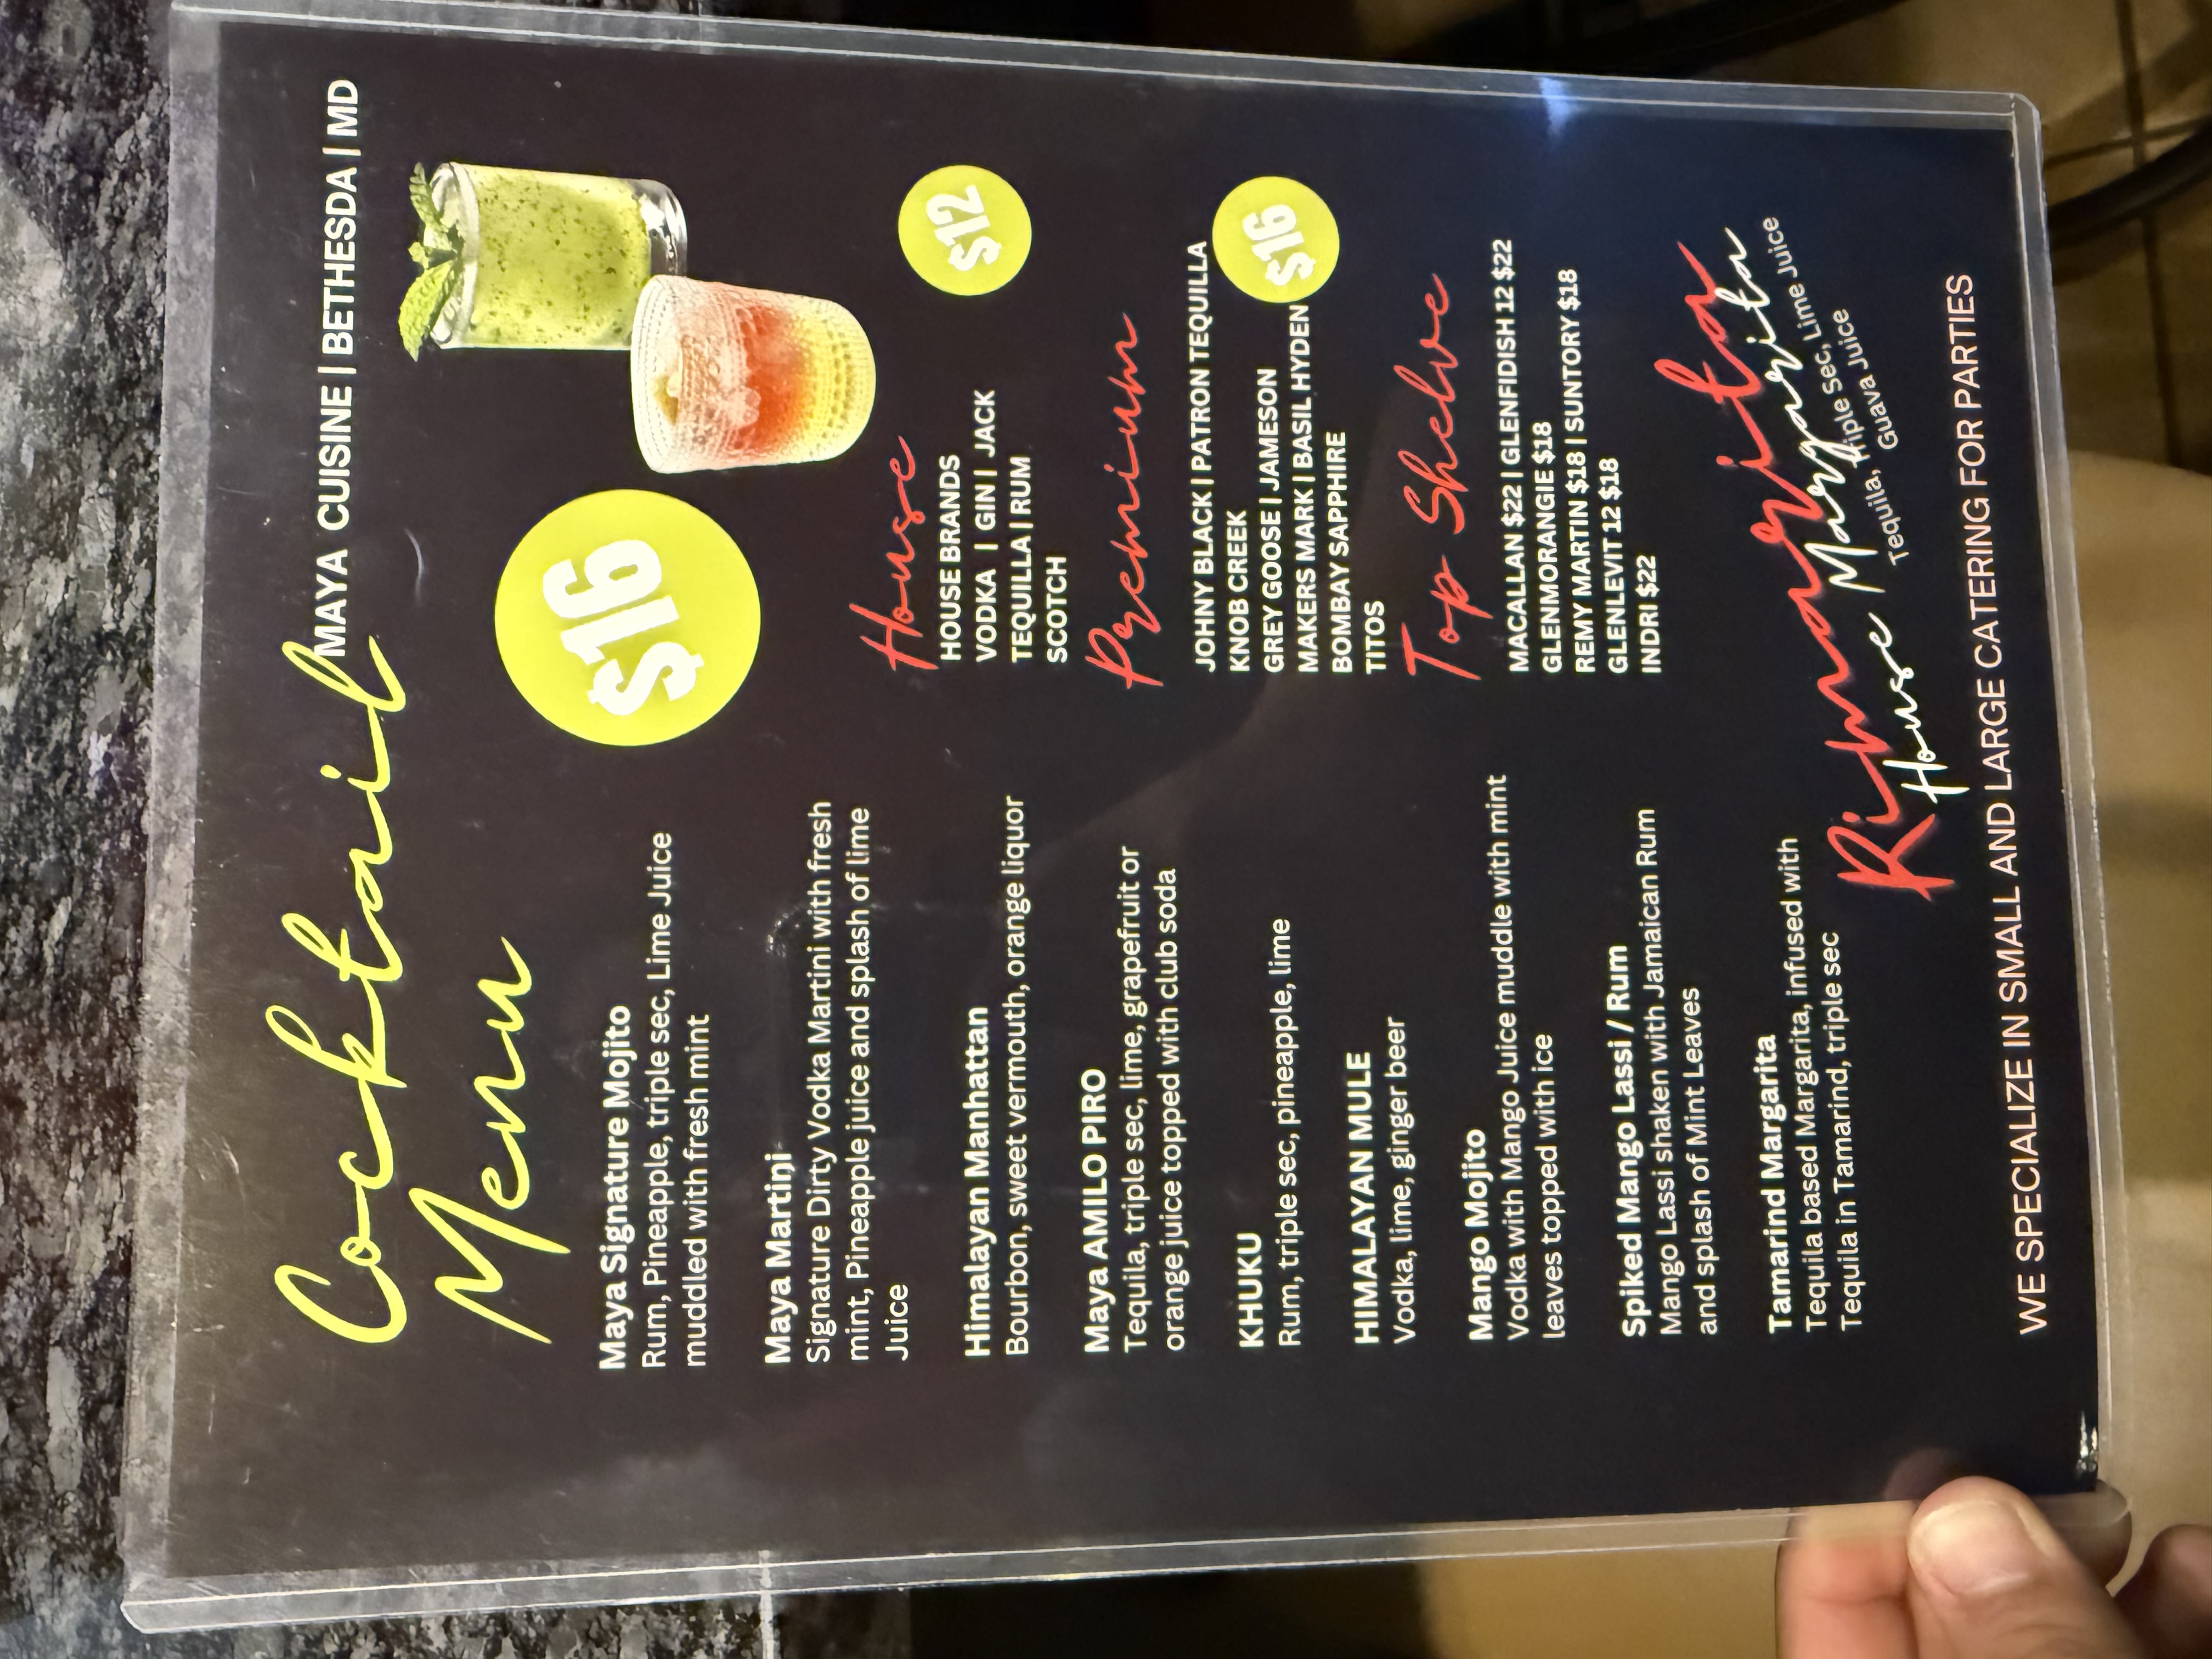 Cocktail
Menu
MAYA CUISINE | BETHESDA | MD
$16
Maya Signature Mojito
Rum, Pineapple, triple sec, Lime Juice
muddled with fresh mint
Maya Martini
Signature Dirty Vodka Martini with fresh
mint, Pineapple juice and splash of lime
Juice
Himalayan Manhattan
Bourbon, sweet vermouth, orange liquor
Maya AMILO PIRO
Tequila, triple sec, lime, grapefruit or
orange juice topped with club soda
KHUKU
Rum, triple sec, pineapple, lime
HIMALAYAN MULE
Vodka, lime, ginger beer
Mango Mojito
Vodka with Mango Juice muddle with mint
leaves topped with ice
Spiked Mango Lassi / Rum
Mango Lassi shaken with Jamaican Rum
and splash of Mint Leaves
Tamarind Margarita
Tequila based Margarita, infused with
Tequila in Tamarind, triple sec
House
$12
HOUSE BRANDS
VODKA | GIN | JACK
TEQUILLA | RUM
SCOTCH
Premium
JOHNY BLACK | PATRON TEQUILLA
KNOB CREEK
GREY GOOSE | JAMESON
MAKERS MARK | BASIL HYDEN
BOMBAY SAPPHIRE
TITOS
$16
Top Shelve
MACALLAN $22 | GLENFIDISH 12 $22
GLENMORANGIE $18
REMY MARTIN $18 | SUNTORY $18
GLENLEVIT 12 $18
INDRI $22
Rimarita
House Margarita
Tequila, Triple Sec, Lime Juice
Guava Juice
WE SPECIALIZE IN SMALL AND LARGE CATERING FOR PARTIES